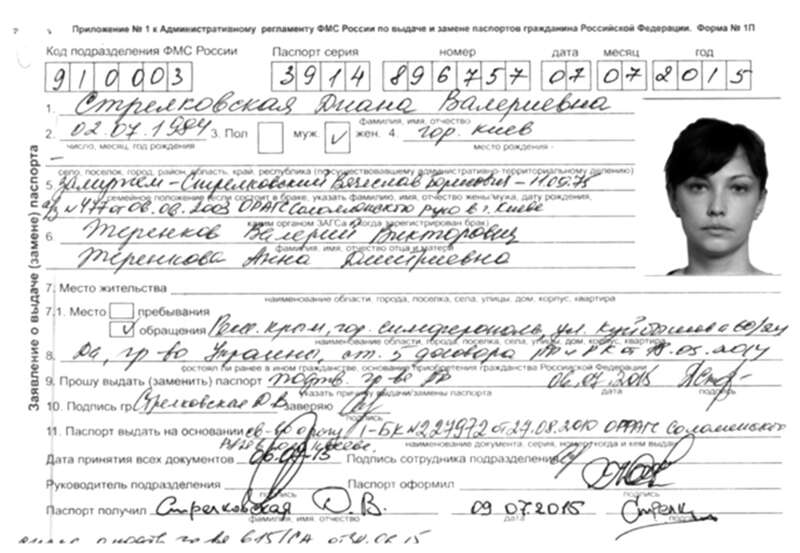 Приложение № 1 к Административному регламенту ФМС России по выдаче и замене паспортов гражданина Российской Федерации. Форма № 1П
Код подразделения ФМС России Паспорт серия номер дата месяц год
910003 3914 896757 07 07 2015
1. Стрелковская Диана Валериевна
фамилия, имя, отчество
2. 02.07.1984 3. Пол муж. ✓ жен. 4. гор. Киев
число, месяц, год рождения место рождения -
село, поселок, город, район, область, край, республика (по существовавшему административно-территориальному делению)
5. Замужем - Стрелковский Вячеслав Борисович -
семейное положение если состоит в браке, указать фамилию, имя, отчество жены/мужа, дату рождения,
№ 477 от 06.08.2003 ОРАГС Соломенского в г. Киеве
каким органом ЗАГСа (когда зарегистрирован брак)
6. Теренков Валерий Викторович
фамилия, имя, отчество отца и матери
Теренкова Анна Дмитриевна
7. Место жительства
наименование области, города, поселка, села, улицы, дом, корпус, квартира
7.1. Место пребывания
✓ обращения Респ. Крым, гор. Симферополь, ул. Куйбышева
наименование области, города, поселка, села, улицы, дом, корпус, квартира
8. Да, гр-во Украины, ст. 5 договора РФ и РК от 18.03.2014
состоял ли ранее в ином гражданстве, основание приобретения гражданства Российской Федерации
9. Прошу выдать (заменить) паспорт гр-ва РФ 06.07.2015
указать причину выдачи/замены паспорта подпись
10. Подпись гр. Стрелковская Д.В. заверяю
подпись
11. Паспорт выдать на основании св-во о рожд. I-БК №227972 от 27.08.2010 ОРАГС Соломенского
наименование документа, серия, номер, когда и кем выдан
Дата принятия всех документов 06.07.15 Подпись сотрудника подразделения
Руководитель подразделения Паспорт оформил
подпись подпись
Паспорт получил Стрелковская Д.В. 09.07.2015
фамилия, имя, отчество дата подпись
Заявление о выдаче (замене) паспорта